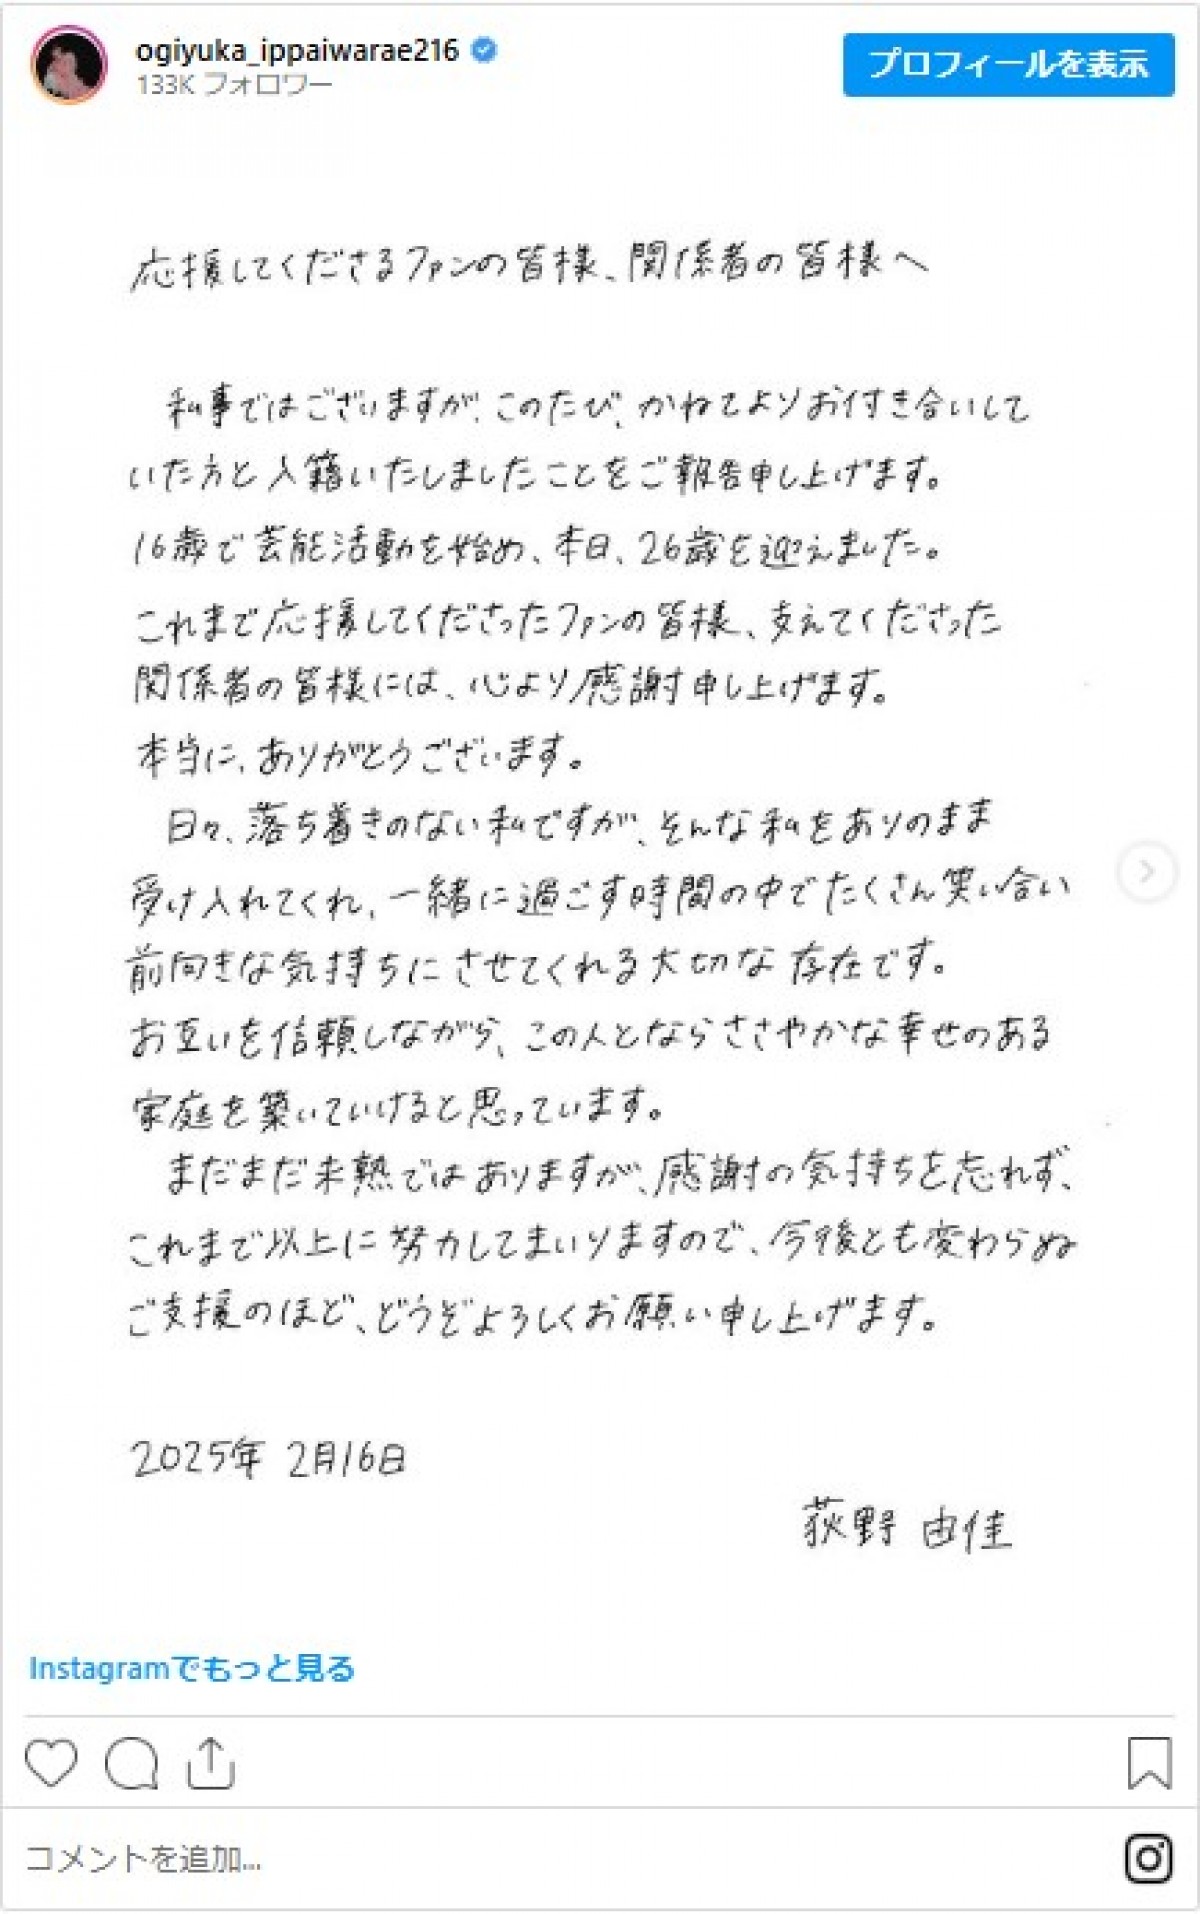 ogiyuka_ippaiwarae216
133K フォロワー
プロフィールを表示
応援してくださるファンの皆様、関係者の皆様へ
私事ではございますが、このたび、かねてよりお付き合いして
いた方と入籍いたしましたことをご報告申し上げます。
16歳で芸能活動を始め、本日、26歳を迎えました。
これまで応援してくださったファンの皆様、支えてくださった
関係者の皆様には、心より感謝申し上げます。
本当に、ありがとうございます。
日々、落ち着きのない私ですが、そんな私をありのまま
受け入れてくれ、一緒に過ごす時間の中でたくさん笑い合い
前向きな気持ちにさせてくれる大切な存在です。
お互いを信頼しながら、この人とならささやかな幸せのある
家庭を築いていけると思っています。
まだまだ未熟ではありますが、感謝の気持ちを忘れず、
これまで以上に努力してまいりますので、今後とも変わらぬ
ご支援のほど、どうぞよろしくお願い申し上げます。
2025年 2月16日
荻野 由佳
Instagramでもっと見る
コメントを追加...